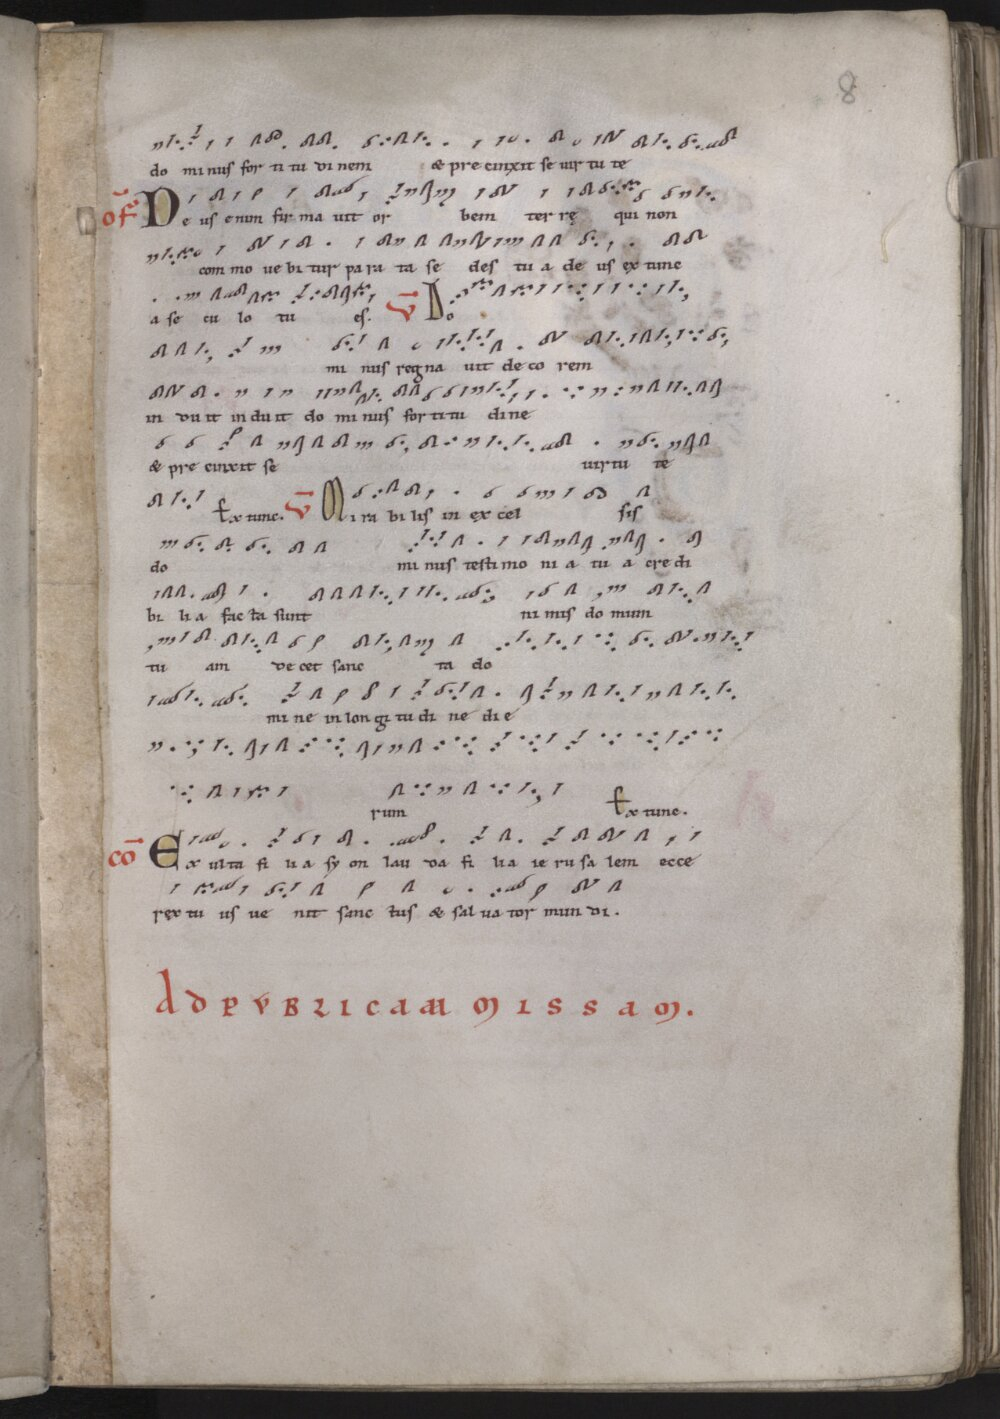 8
do mi nus for ti tu di nem & pre cinxit se uir tu te
of De us enim fir ma uit or bem ter rę qui non
com mo ue bi tur pa ra ta se des tu a de us ex tunc
a se cu lo tu es. V Do
mi nus regna uit de co rem
in du it in du it do mi nus for ti tu dine
& pre cinxit se uirtu te
Ex tunc. V Mi ra bi lis in ex cel sis
do mi nus testi mo ni a tu a cre di
bi li a fac ta sunt ni mis do mum
tu am de cet sanc ta do
mi ne in lon gi tu di ne di e
rum Ex tunc.
co Ex ul ta fi li a sy on lau da fi li a ie ru sa lem ecce
rex tu us ue nit sanc tus & sal ua tor mun di.
AD PUBLICAM MISSAM.